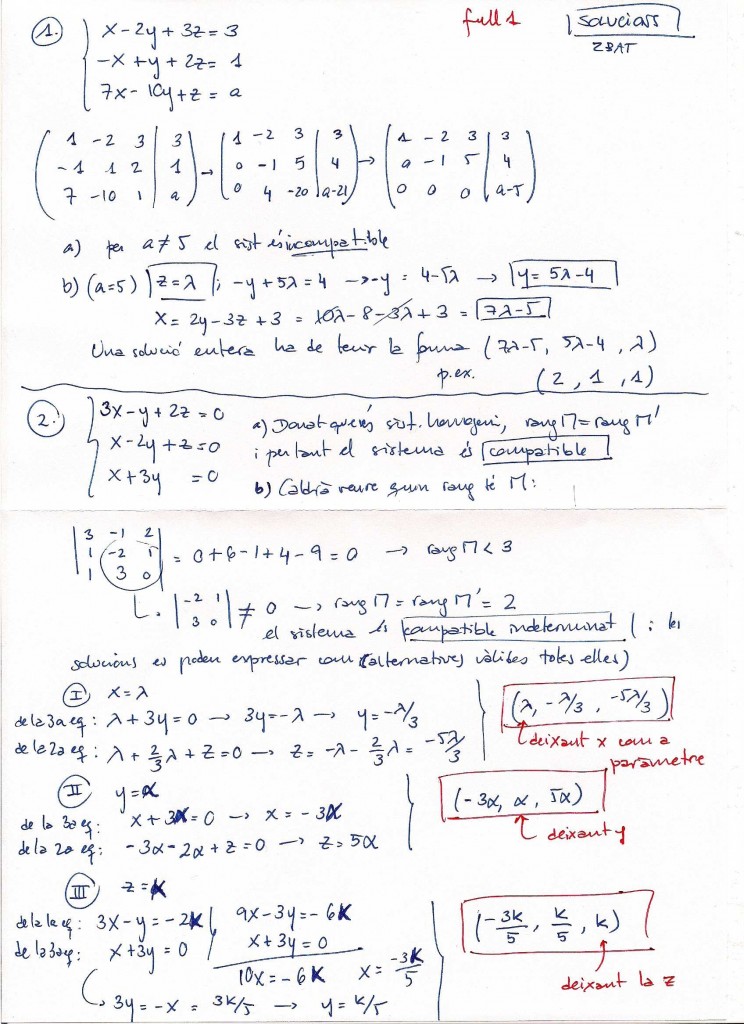 full 1 SOLUCIONS
2BAT
1. x - 2y + 3z = 3
-x + y + 2z = 1
7x - 10y + z = a
( 1 -2 3 | 3 ) → ( 1 -2 3 | 3 ) → ( 1 -2 3 | 3 )
( -1 1 2 | 1 ) ( 0 -1 5 | 4 ) ( 0 -1 5 | 4 )
( 7 -10 1 | a ) ( 0 4 -20 | a-21 ) ( 0 0 0 | a-5 )
a) per a ≠ 5 el sist és incompatible
b) (a=5) z = λ ; -y + 5λ = 4 → -y = 4-5λ → y = 5λ-4
x = 2y - 3z + 3 = 10λ - 8 - 3λ + 3 = 7λ-5
Una solució entera ha de tenir la forma (7λ-5, 5λ-4, λ)
p.ex. (2, 1, 1)
2. 3x - y + 2z = 0
x - 2y + z = 0
x + 3y = 0
a) Donat que és sist. homogeni, rang M = rang M'
i per tant el sistema és compatible
b) Caldrà veure quin rang té M:
| 3 -1 2 |
| 1 -2 1 | = 0+6-1+4-9 = 0 → rang M < 3
| 1 3 0 |
| -2 1 | ≠ 0 → rang M = rang M' = 2
| 3 0 |
el sistema és compatible indeterminat i les
solucions es poden expressar com (alternatives vàlides totes elles)
I x = λ
de la 3a eq: λ + 3y = 0 → 3y = -λ → y = -λ/3
de la 2a eq: λ + 2/3 λ + z = 0 → z = -λ - 2/3 λ = -5λ/3
(λ, -λ/3, -5λ/3)
deixant x com a
paràmetre
II y = α
de la 3a eq: x + 3α = 0 → x = -3α
de la 2a eq: -3α - 2α + z = 0 → z = 5α
(-3α, α, 5α)
deixant y
III z = k
de la 1a eq: 3x - y = -2k | 9x - 3y = -6k
de la 3a eq: x + 3y = 0 | x + 3y = 0
10x = -6k x = -3k/5
3y = -x = 3k/5 → y = k/5
(-3k/5, k/5, k)
deixant la z